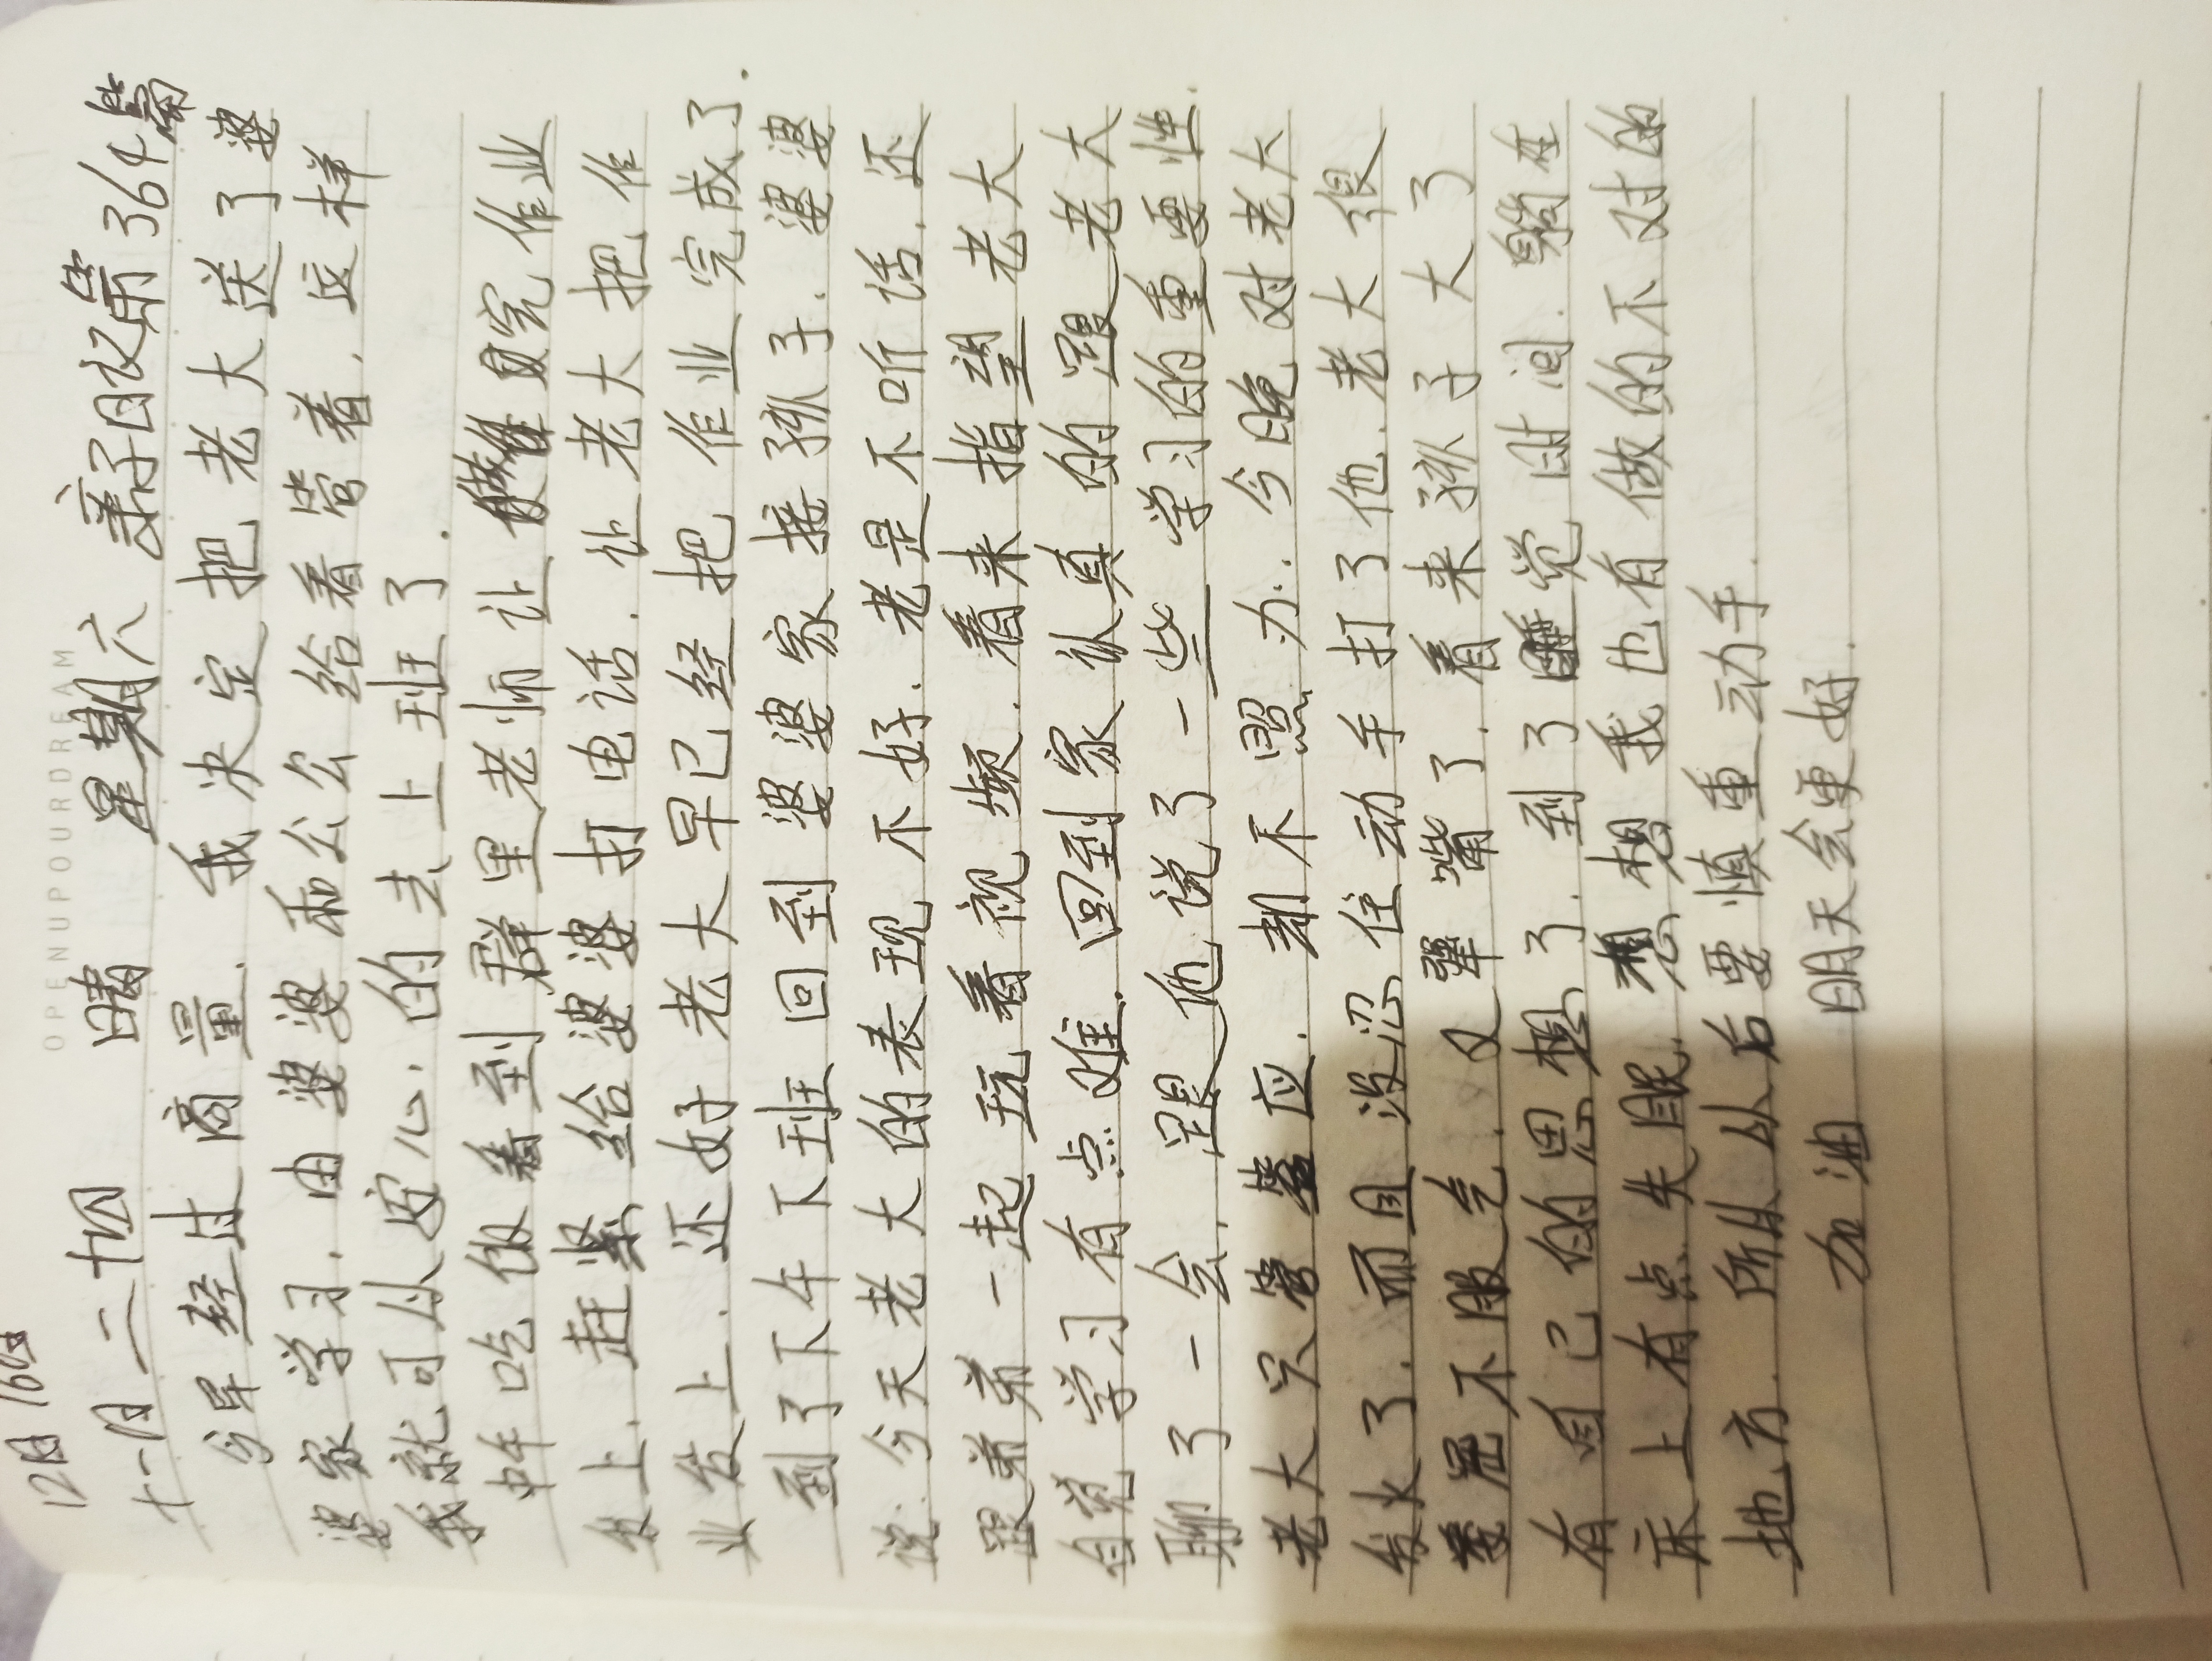 12月16日
OPENUPOURDREAM
十一月二十四 晴 星期六 亲子日记第364篇
今早经过商量.我决定把老大送了婆
婆家学习.由婆婆和公公给看管着.这样
我就可以安心的去上班了.
中午吃饭看到群里老师让做完作业
发上.赶紧给婆婆打电话.让老大把作
业发上.还好老大早已经把作业完成了.
到了下午下班回到婆婆家接孩子.婆婆
说.今天老大的表现不好.老是不听话.还
跟弟弟一起玩看视频.看来指望老大
自觉学习有点难.回到家认真的跟老大
聊了一会.跟他说了一些学习的重要性.
老大只管答应.却不照办.今晚对老大
发火了.而且没忍住动手打了他.老大很
是不服气.又犟嘴了.看来孩子大了
有自己的思想了.到了睡觉时间.躺在
床上有点失眠.想想我也有做的不对的
地方.所以以后要慎重动手.
加油 明天会更好.